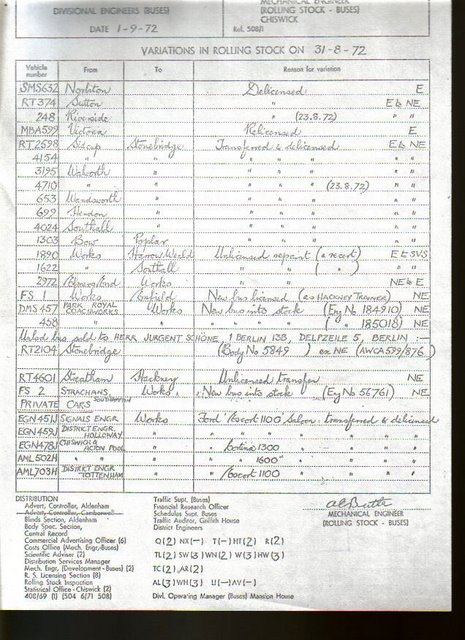 DIVISIONAL ENGINEERS (BUSES)
MECHANICAL ENGINEER
(ROLLING STOCK - BUSES)
CHISWICK
DATE 1-9-72
Ref. 508/1
VARIATIONS IN ROLLING STOCK ON 31-8-72
Vehicle number From To Reason for variation
SMS632 Norbiton Delicensed E
RT374 Sutton " E & NE
248 Riverside " (23.8.72) " "
MBA599 Victoria Relicensed E
RT2598 Sidcup Stonebridge Transferred & delicensed E & NE
4154 " " " " " "
3195 Walworth " " " " "
4710 " " " " (23.8.72) " "
653 Wandsworth " " " " "
699 Hendon " " " " "
4024 Southall " " " " "
1303 Bow Poplar " " " "
1890 Works Harrow Weald Unlicensed repaint (a recert) E E SVS
1622 " Southall " " ( " ) " "
2972 Works " " NE & E
FS 1 Works Enfield New bus licensed (as HACKNEY TRAINER) NE
DMS 457 PARK ROYAL COACHWORKS Works New bus into stock (Eng No 184910) NE
458 " " " " ( " 185018) NE
Unlsd bus sold to HERR JURGENT SCHÖNE, 1 BERLIN 133, DELPZEILE 5, BERLIN :-
RT2104 Stonebridge (Body No 5849) ex NE (AWCA599/876)
RT4601 Streatham Hackney Unlicensed transfer NE
FS 2 STRACHANS, Works New bus into stock (Eng No 56761) NE
PRIVATE CARS
EGN451J SIGNALS ENGR Works Ford 'Escort 1100' Saloon: transferred & delicensed
EGN459J DISTRICT ENGR. HOLLOWAY " " " " " "
EGN478J CHISWICK & ACTON POOL " " 'Cortina 1300' " "
AML502H " " " " 1600" " "
AML703H DISTRICT ENGR TOTTENHAM " " 'Escort 1100 " "
DISTRIBUTION
Advert, Controller, Aldenham
Blinds Section, Aldenham
Body Spec. Section,
Central Record
Commercial Advertising Officer (6)
Costs Office (Mech. Engr-Buses)
Scientific Adviser (2)
Distribution Services Manager
Mech. Engr. (Development - Buses) (2)
R. S. Licensing Section (8)
Rolling Stock Inspection
Statistical Office - Chiswick (2)
408/69 (1) (504 6/71 508)
Traffic Supt. (Buses)
Financial Research Officer
Schedules Supt. Buses
Traffic Auditor, Griffith House
District Engineers
Q(2) NX(-) T(-) HT(2) R(2)
TL(2) SW(3) WN(2) W(3) HW(3)
TC(2), AR(2)
AL(3) WH(3) U(-) AV(-)
Divl. Operating Manager (Buses) Mansion House
MECHANICAL ENGINEER
(ROLLING STOCK - BUSES)